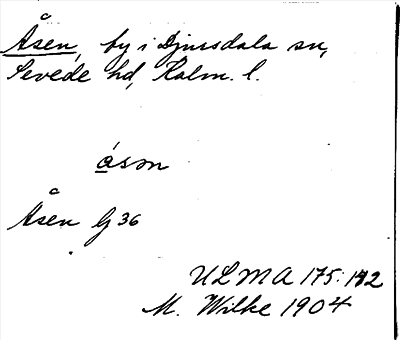 Åsen, by i Djursdala sn,
Sevede hd, Kalm. l.
åsən
Åsen G 36
ULMA 175:192
M. Wilke 1904